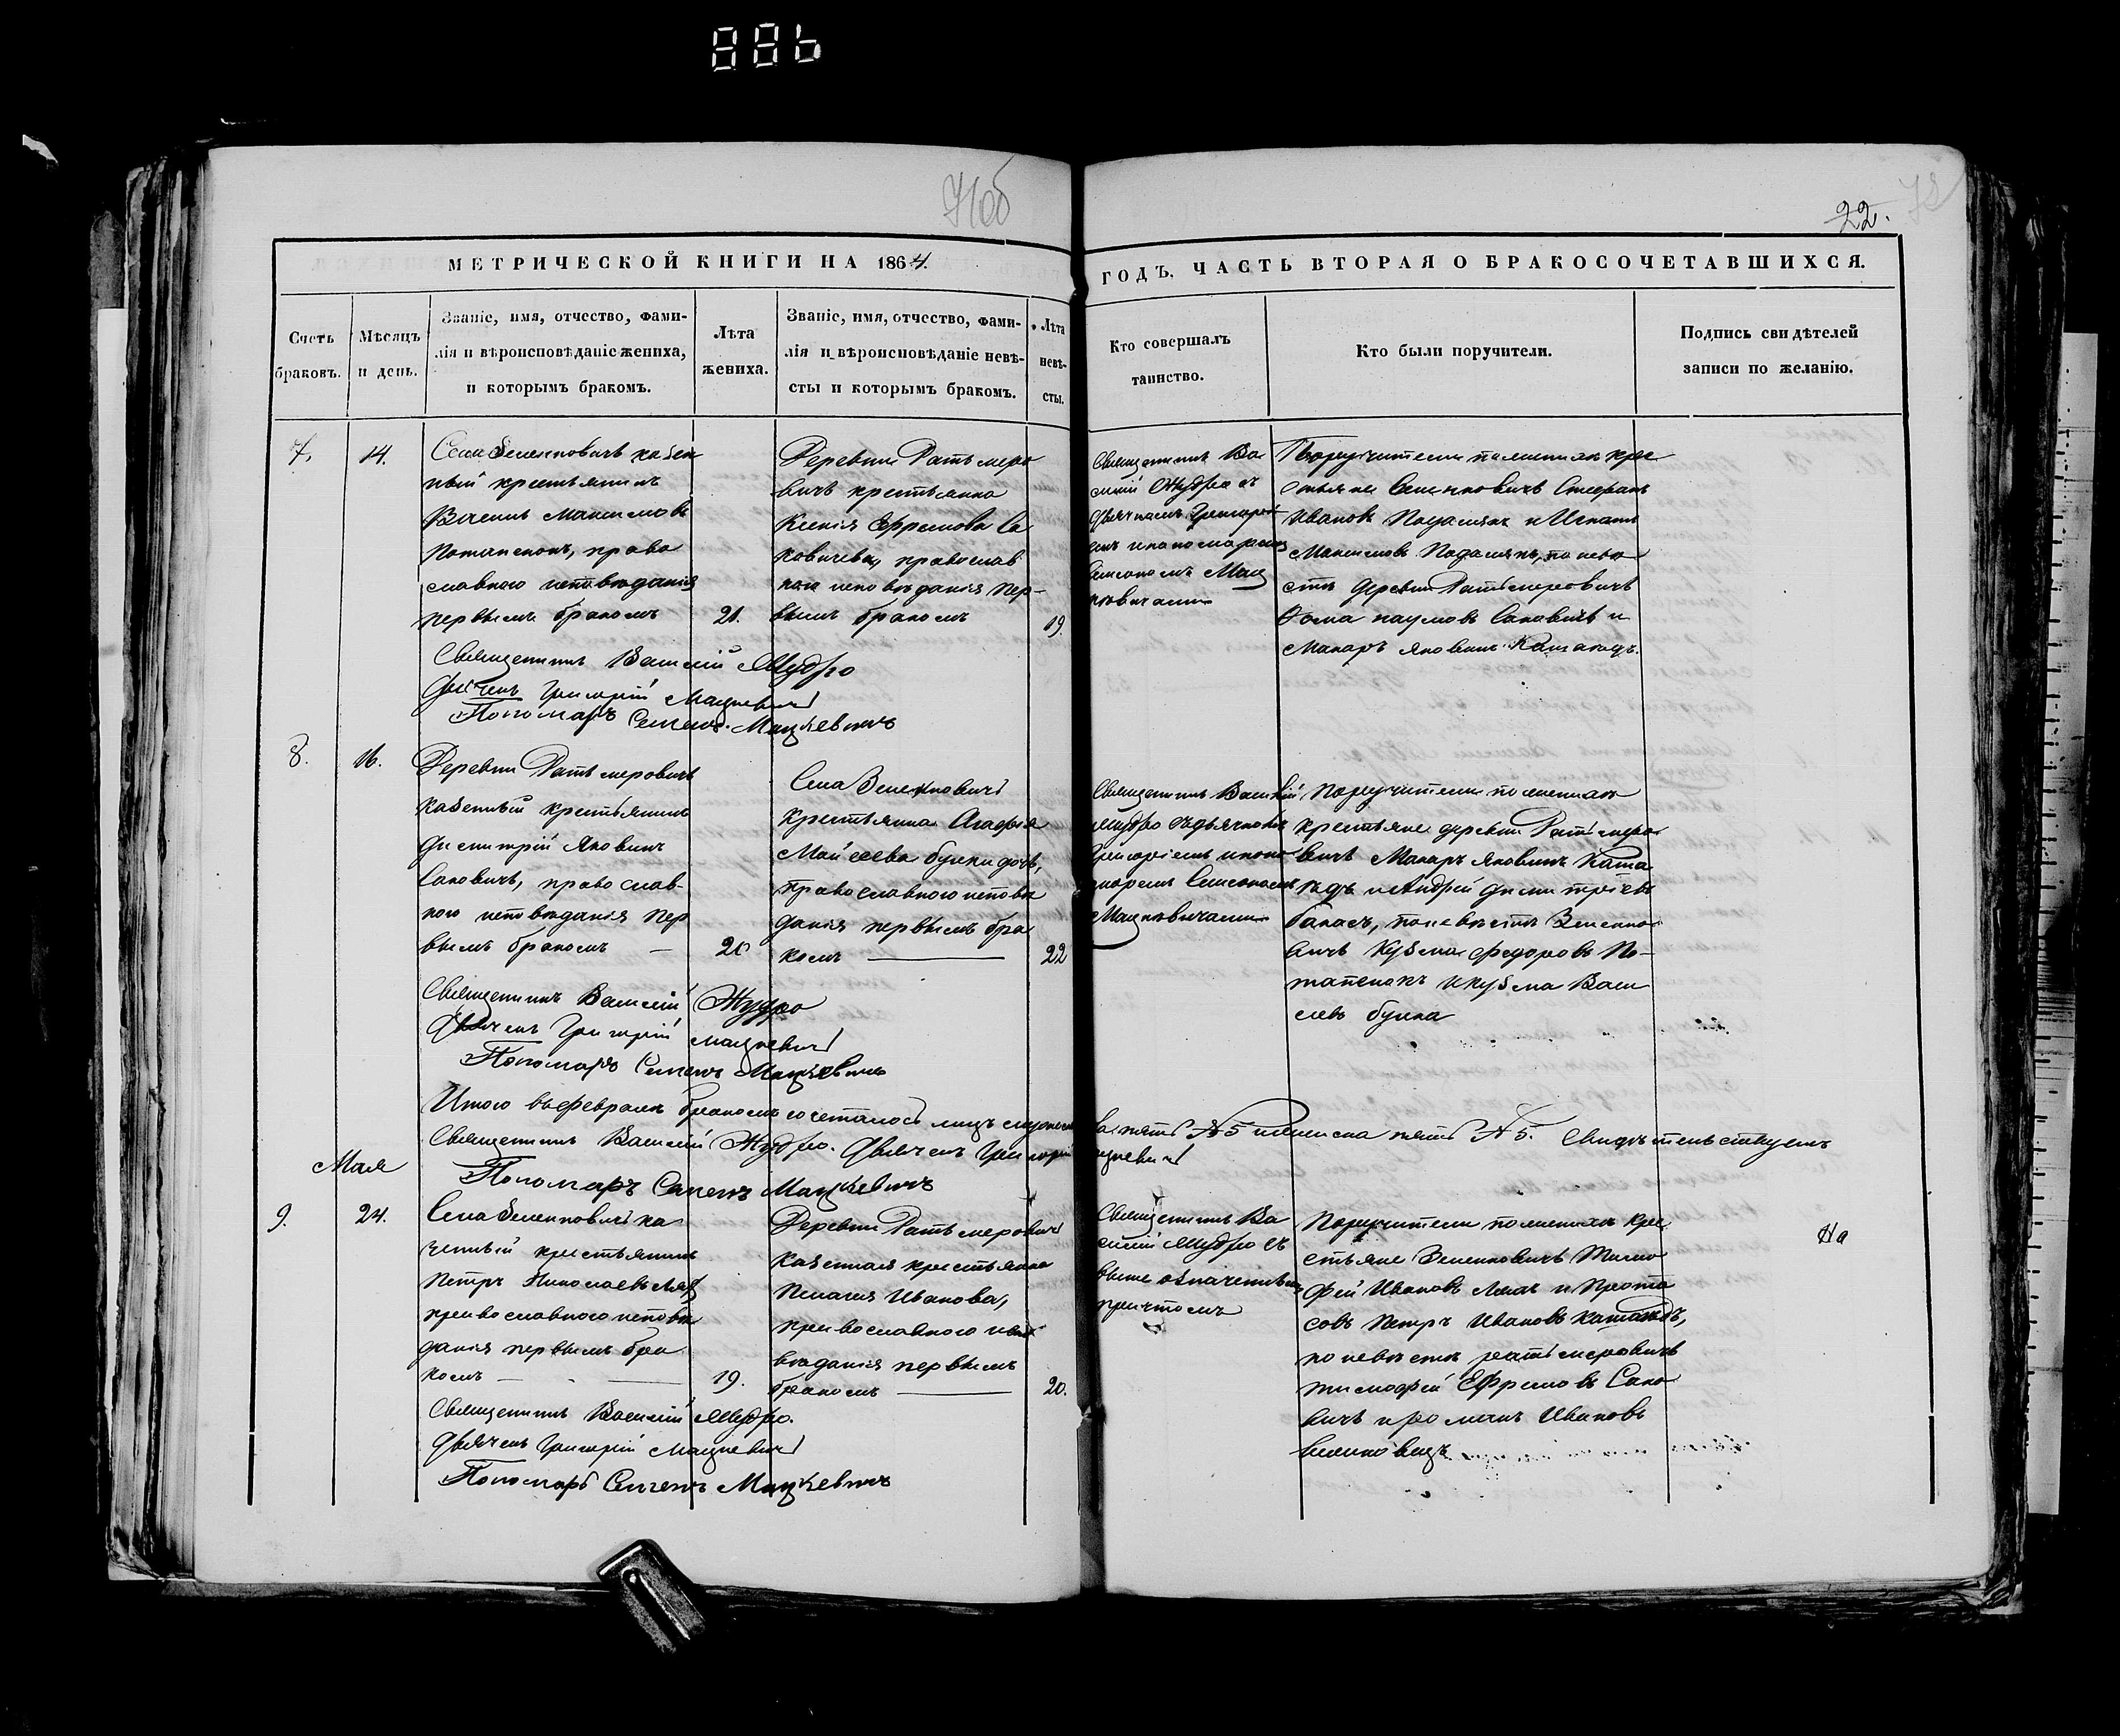 71об
22.
72
МЕТРИЧЕСКОЙ КНИГИ НА 1864.
ГОДЪ. ЧАСТЬ ВТОРАЯ О БРАКОСОЧЕТАВШИХСЯ.
Счетъ браковъ.
Мѣсяцъ и день.
Званіе, имя, отчество, фами-
лія и вѣроисповѣданіе жениха,
и которымъ бракомъ.
Лѣта
жениха.
Званіе, имя, отчество, фами-
лія и вѣроисповѣданіе невѣ-
сты и которымъ бракомъ.
Лѣта
невѣ-
сты.
Кто совершалъ
таинство.
Кто были поручители.
Подпись свидѣтелей
записи по желанію.
7.
14.
Села Зеленковичъ казен
ный крестьянинъ
Максимовъ
Потапенокъ, право
славного исповѣданія
первымъ бракомъ
21.
Деревни Ратьмеро
вичъ крестьянка
Ксенія Ефремова Са
ковичева, православ
ного исповѣданія пер-
вымъ бракомъ
19.
Священникъ Ва
силій Жудро съ
дьячкомъ Григорі
емъ и пономаремъ
Симеономъ Мац
кевичами
Поручители по женихѣ кре
стьяне Зеленковичъ Стефанъ
Ивановъ и Игнатъ
Максимовъ по невѣ
стѣ деревни Ратьмеровичъ
Фома Наумовъ Саковичъ и
Макаръ Яковинъ
Священникъ Василій Жудро
Дьячекъ Григорій Мацкевичъ
Пономарь Семенъ Мацкевичъ
8.
16.
Деревни Ратьмеровичъ
казенный крестьянинъ
Димитрій Яковинъ
Саковичъ, православ-
ного исповѣданія пер
вымъ бракомъ —
20
Села Зеленковичъ
крестьянка Агафія
Майсеева Булки дочь,
православного исповѣ
данія первымъ бра
комъ —
22
Священникъ Василій
Жудро съ дьячкомъ
Григоріемъ и поно
маремъ Симеономъ
Мацкевичами
Поручители по женихѣ
крестьяне деревни Ратьмеро
вичъ Макаръ Яковинъ
и Андрей Димитріевъ
по невѣстѣ Зеленко
вичъ Кузьма Федоровъ По-
тапенокъ и Кузьма Васи
левъ Булка
Священникъ Василій Жудро
Дьячекъ Григорій Мацкевичъ
Пономарь Семенъ Мацкевичъ
Итого въ февралѣ бракомъ сочеталось лицъ мужеска пять № 5 и женска пять № 5. Свидѣтельствуемъ
Священникъ Василій Жудро. Дьячекъ Григорій Мацкевичъ
Пономарь Семенъ Мацкевичъ
Мая
9.
24.
Села Зеленковичъ ка
зенный крестьянинъ
Петръ Николаевъ
православного исповѣ
данія первымъ бра
комъ —
19.
Деревни Ратьмеровичъ
казенная крестьянка
Пелагія Иванова,
православного испо
вѣданія первымъ
бракомъ —
20.
Священникъ Ва
силій Жудро съ
выше означеннымъ
причтомъ
Поручители по женихѣ кре
стьяне Зеленковичъ Тимо
фей Ивановъ и
Петръ Ивановъ
по невѣстѣ Ратьмеровичъ
Тимофей Ефремовъ Сако
вичъ и Романъ Ивановъ
На
Священникъ Василій Жудро.
Дьячекъ Григорій Мацкевичъ
Пономарь Семенъ Мацкевичъ